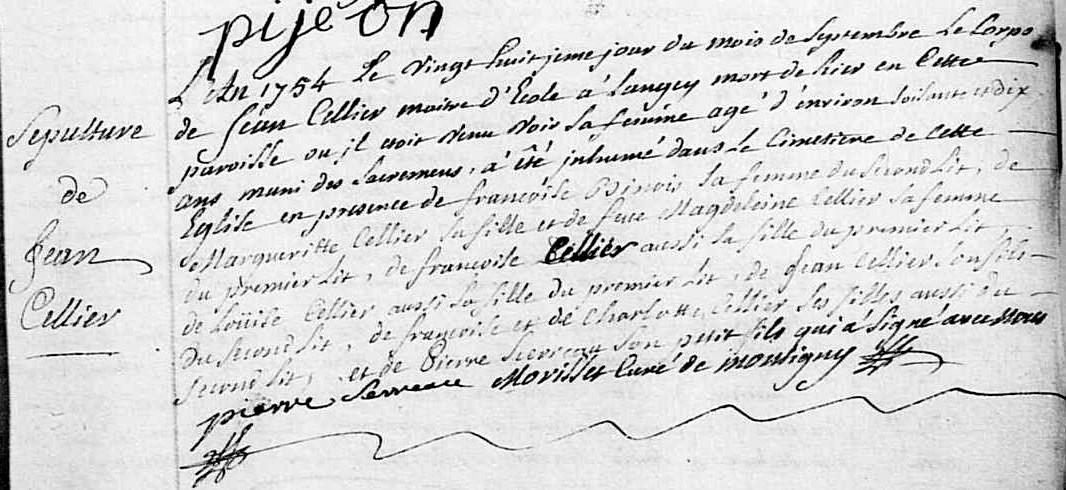 pijeon
L'An 1754 Le vingt huitjeme jour du mois de Septembre Le Corps
de Jean Cellier maitre d'Ecole à Langey mort de hier en Cette
paroisse ou il etoit venu voir sa femme agé d'environ soisante et dix
ans muni des Sacremens, a été jnhumé dans Le Cimetiere de Cette
Eglise en presence de françoise sa femme du second Lit, de
Margueritte Cellier sa fille et de feue Magdeleine Cellier sa femme
du premier Lit, de françoise Cellier aussi sa fille du premier Lit,
de Loüise Cellier aussi sa fille du premier Lit, de Jean Cellier son fils
Du second Lit, de françoise et de Charlotte Cellier ses filles aussi du
second Lit, et de Pierre son petit fils qui a signé avec nous
pierre Serreau Morisset Curé de montigny
Sepulture
de
Jean
Cellier